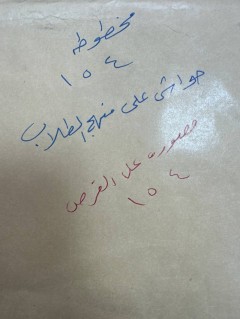 مخطوطه
١٥٤
حواشي على منهج الطلاب
مصوره على القرص
١٥٤